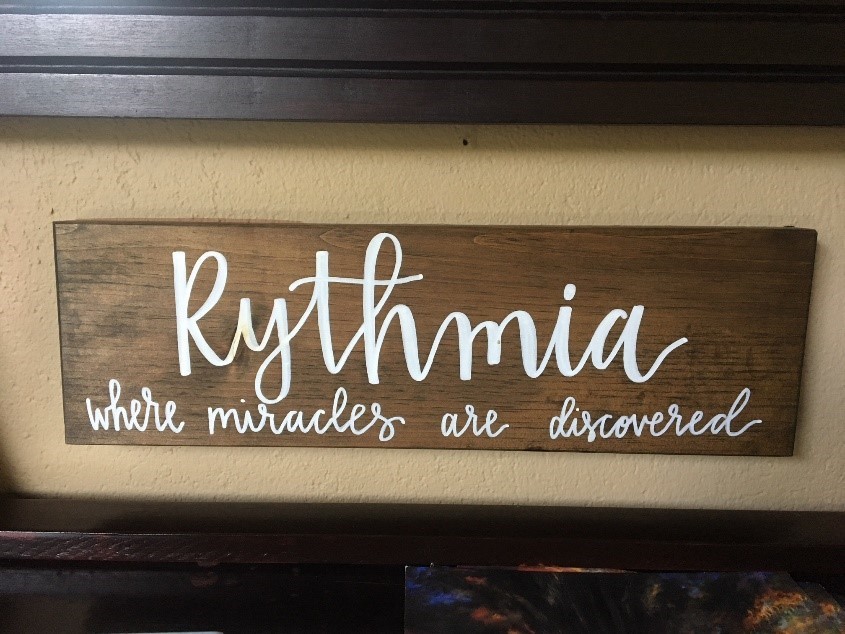 Rythmia
where miracles are discovered